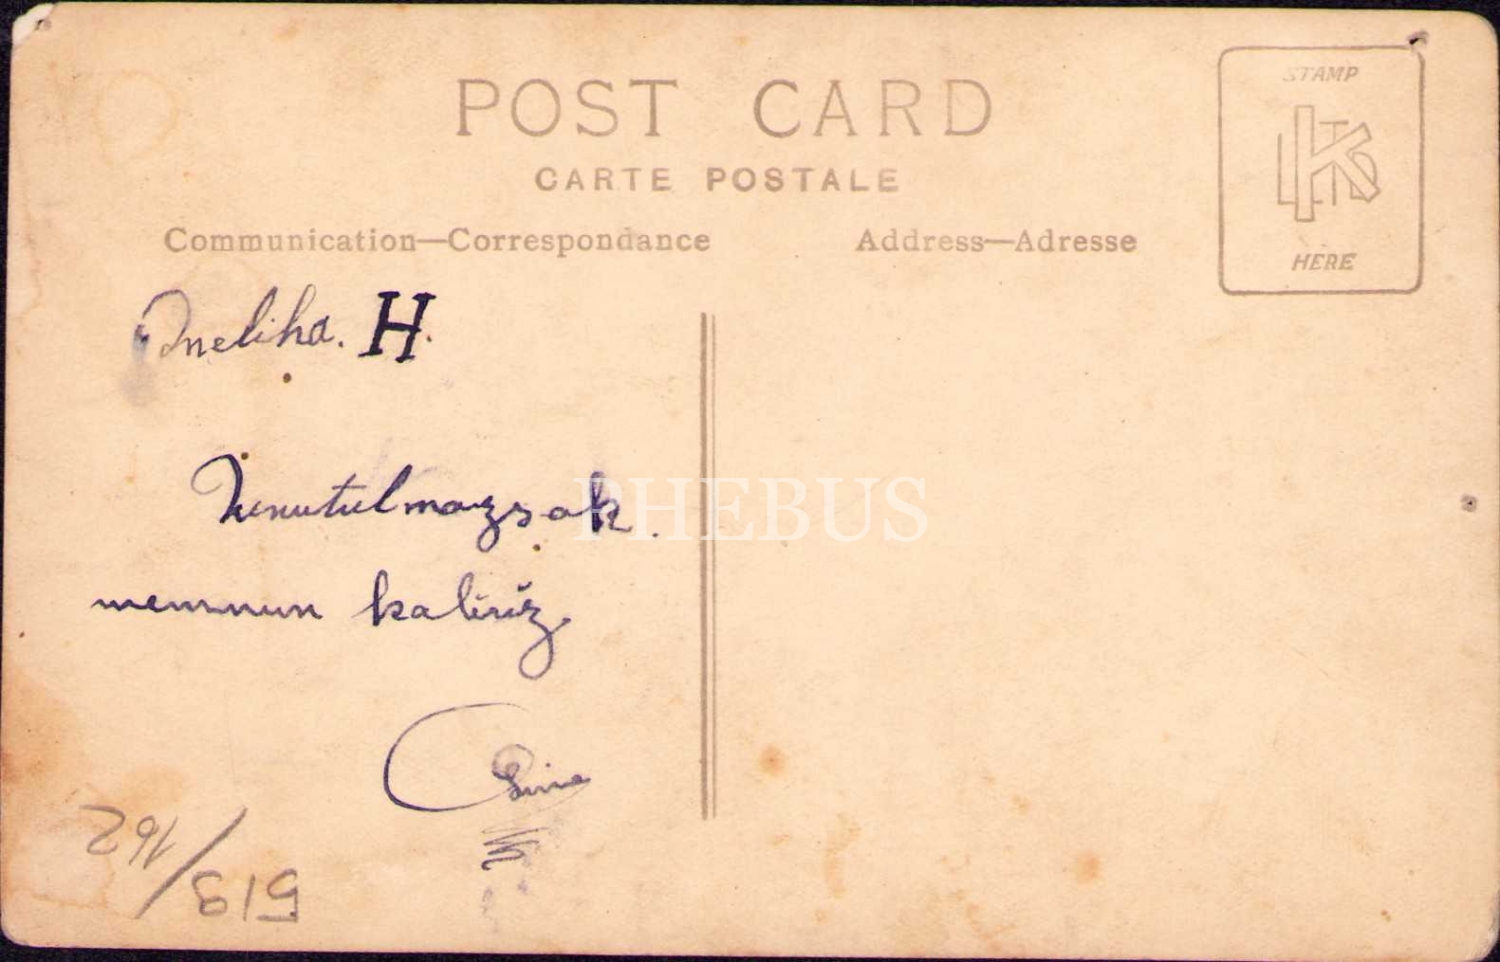 POST CARD
CARTE POSTALE
Communication—Correspondance
Address—Adresse
STAMP
K LTD
HERE
Meliha. H.
Unutulmazsak.
memnun kalırız
PHEBUS